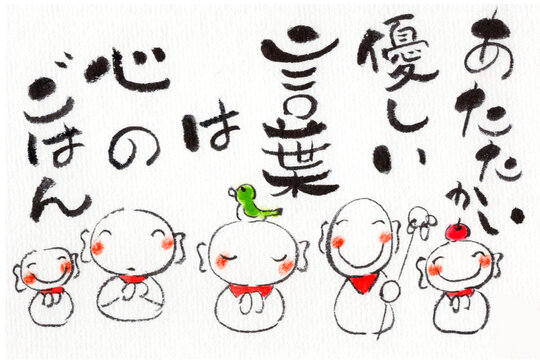 あたたかい
優しい
言葉
は
心の
ごはん